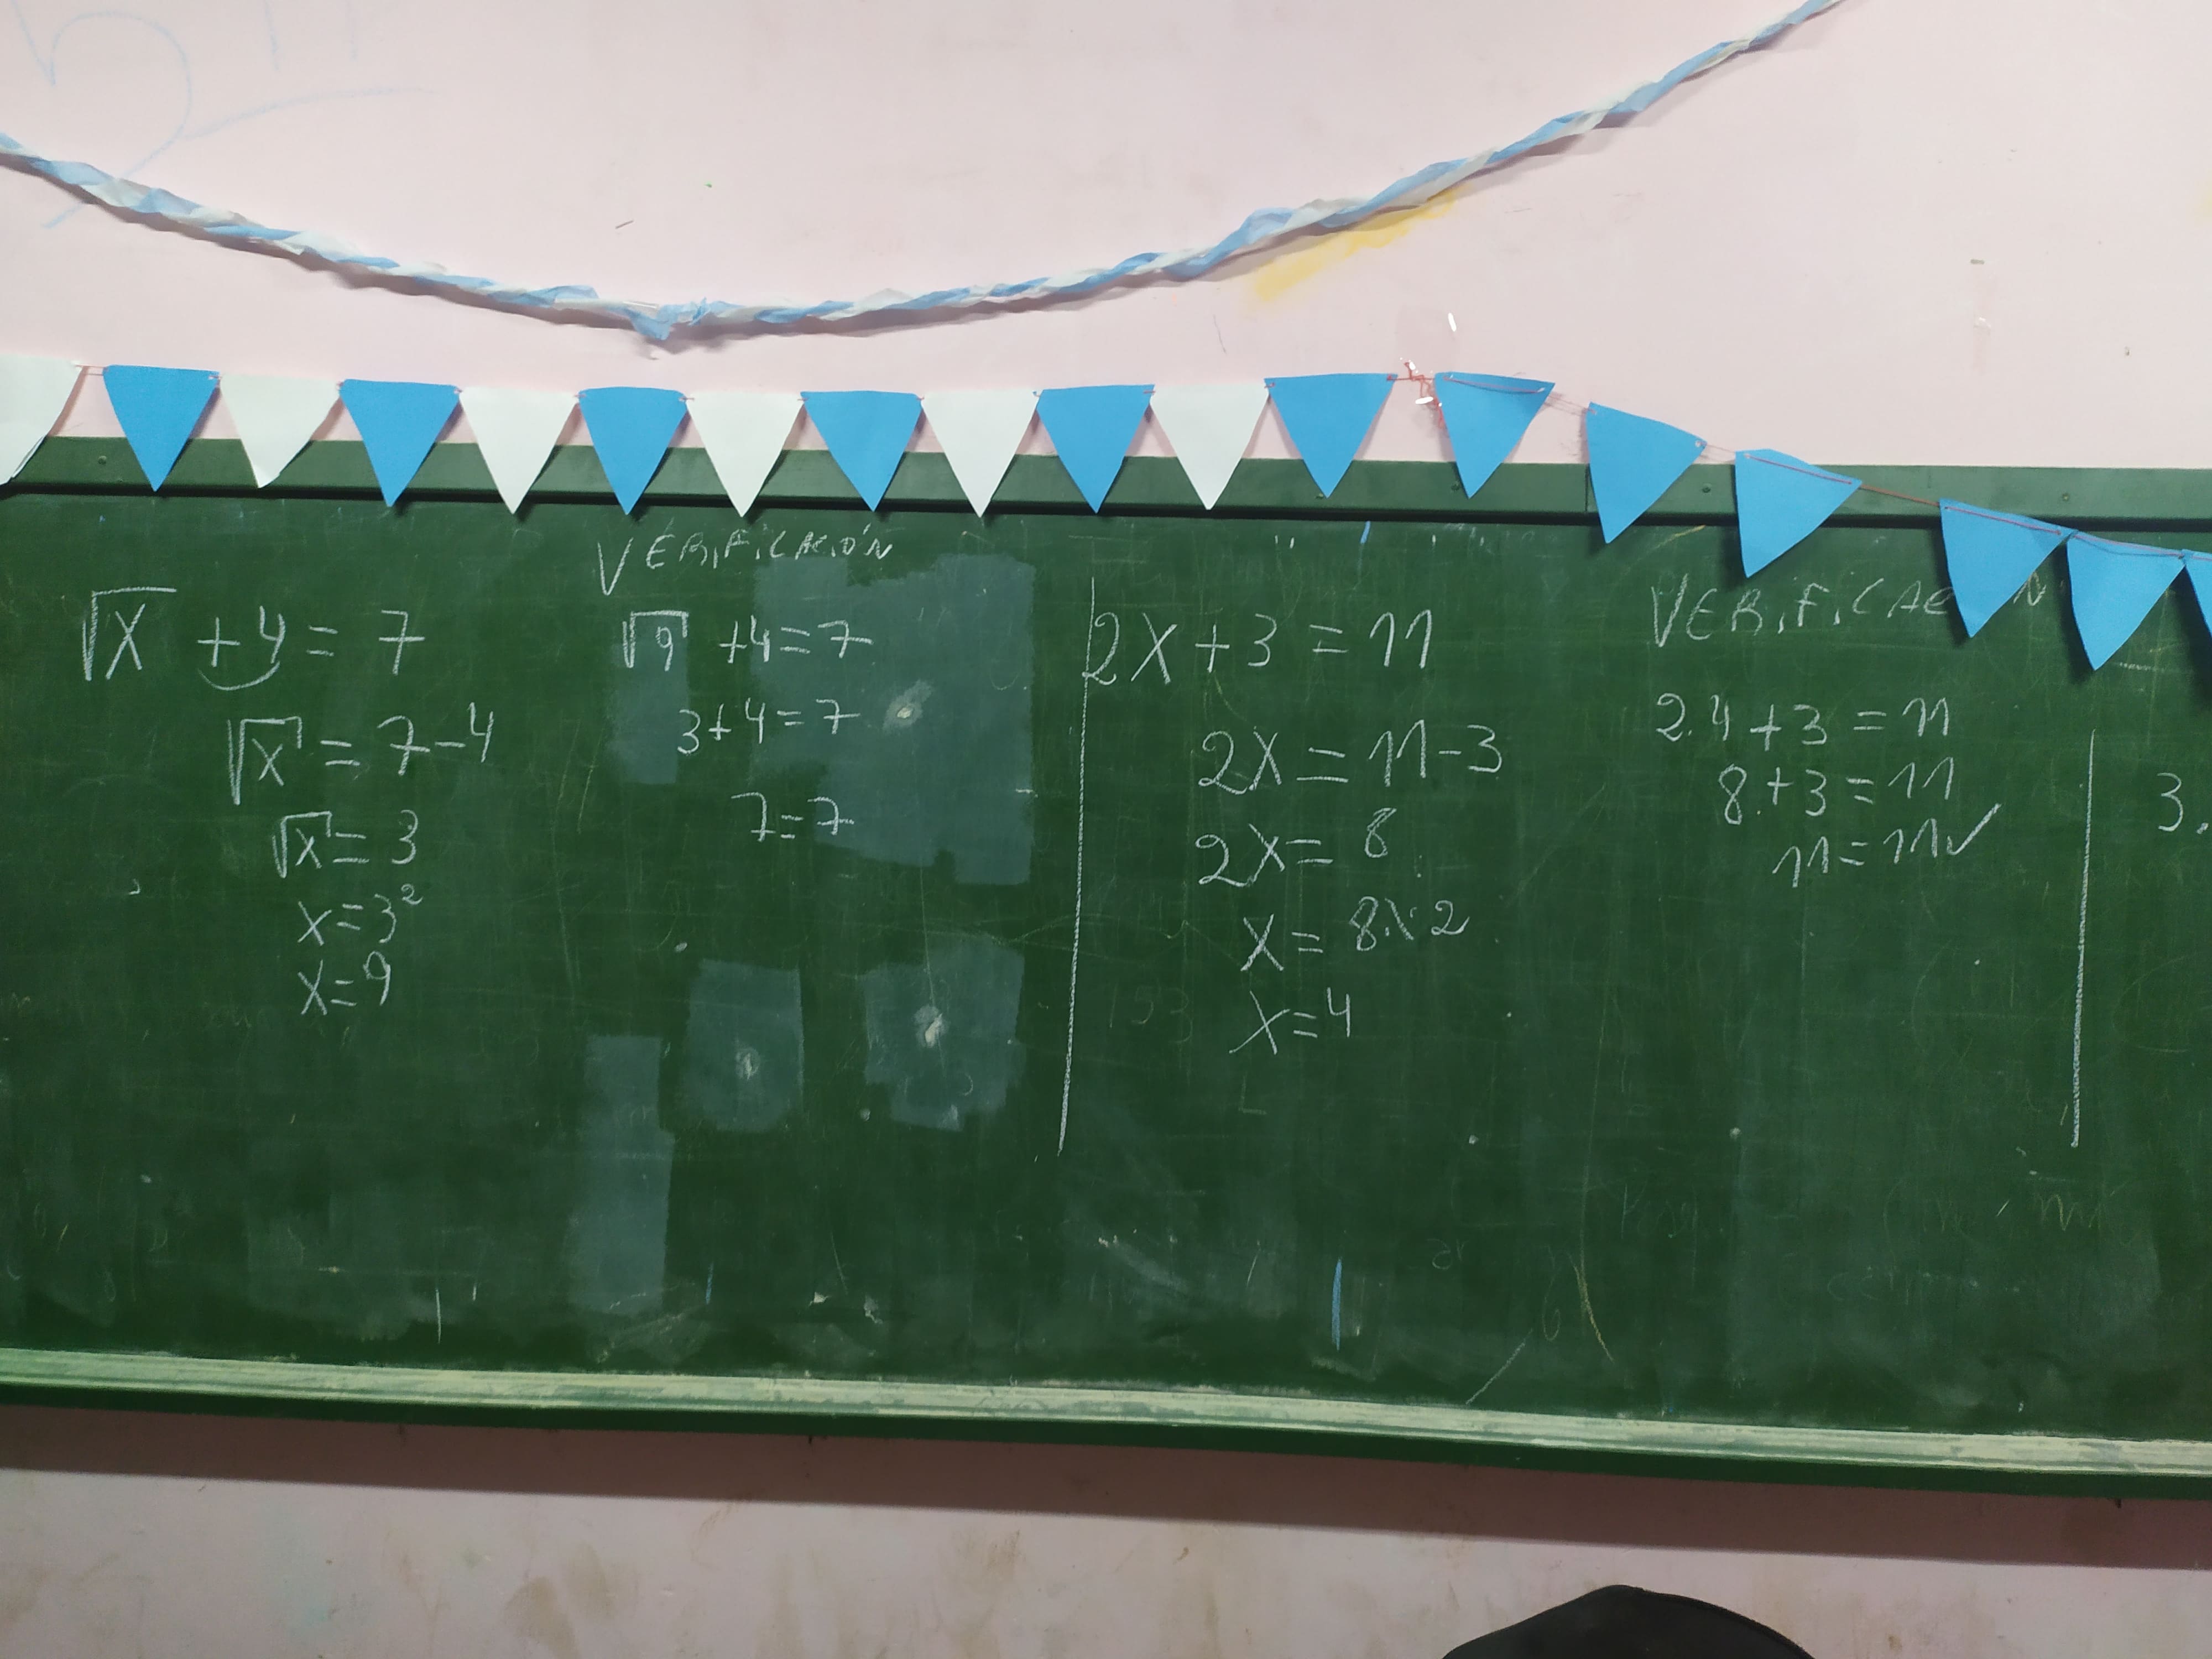 √x + 4 = 7
√x = 7-4
√x = 3
x = 3²
x = 9
VERIFICACIÓN
√9 + 4 = 7
3 + 4 = 7
7 = 7
2x + 3 = 11
2x = 11 - 3
2x = 8
x = 8 : 2
x = 4
VERIFICA N
2.4 + 3 = 11
8 + 3 = 11
11 = 11 ✓
3.